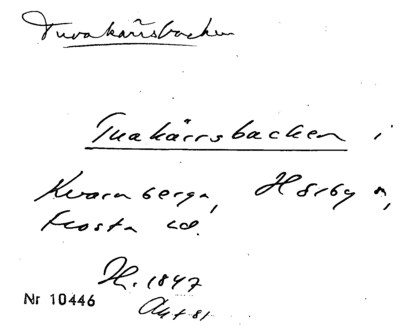 Tuvakärrsbacken
Tuakärrsbacken i
Kvarnberga, Hörby sn,
Frosta hd.
H. 1847
Nr 10446
Akt 81